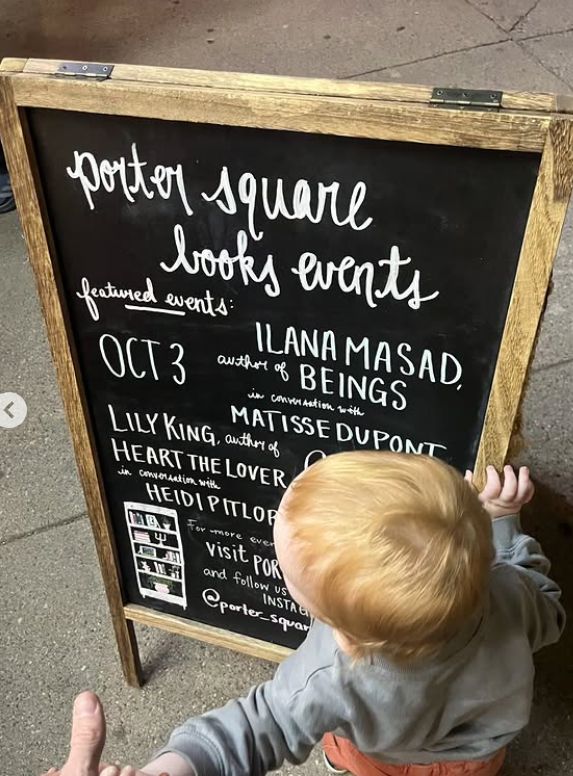 porter square
books events
featured events:
OCT 3
ILANA MASAD,
author of BEINGS
in conversation with
MATISSE DUPONT
LILY KING, author of
HEART THE LOVER
in conversation with
HEIDI PITLOR
For more
visit
and follow us
@porter_squar